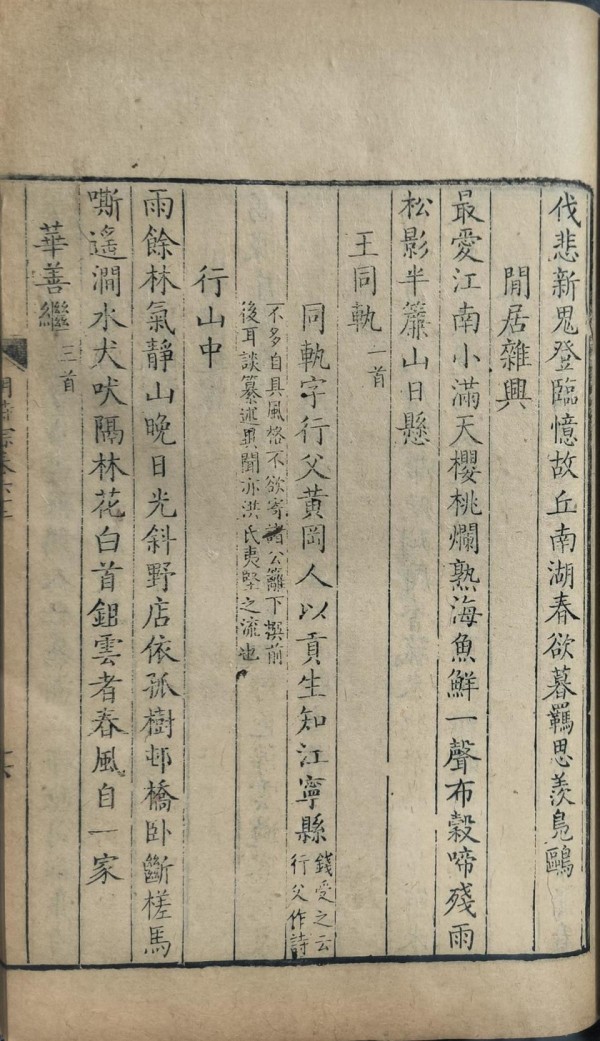 伐悲新鬼登臨憶故丘南湖春欲暮羈思羨鳧鷗
閒居雜興
最愛江南小滿天櫻桃爛熟海魚鮮一聲布穀啼殘雨
松影半簾山日懸
王同軌一首
同軌字行父黃岡人以貢生知江寧縣錢受之云
行父作詩
不多自具風格不欲寄諸公籬下撰前
後耳談纂述異聞亦洪氏夷堅之流也
行山中
雨餘林氣靜山晚日光斜野店依孤樹邨橋卧斷槎馬
嘶遙澗水犬吠隔林花白首鉏雲者春風自一家
華善繼三首